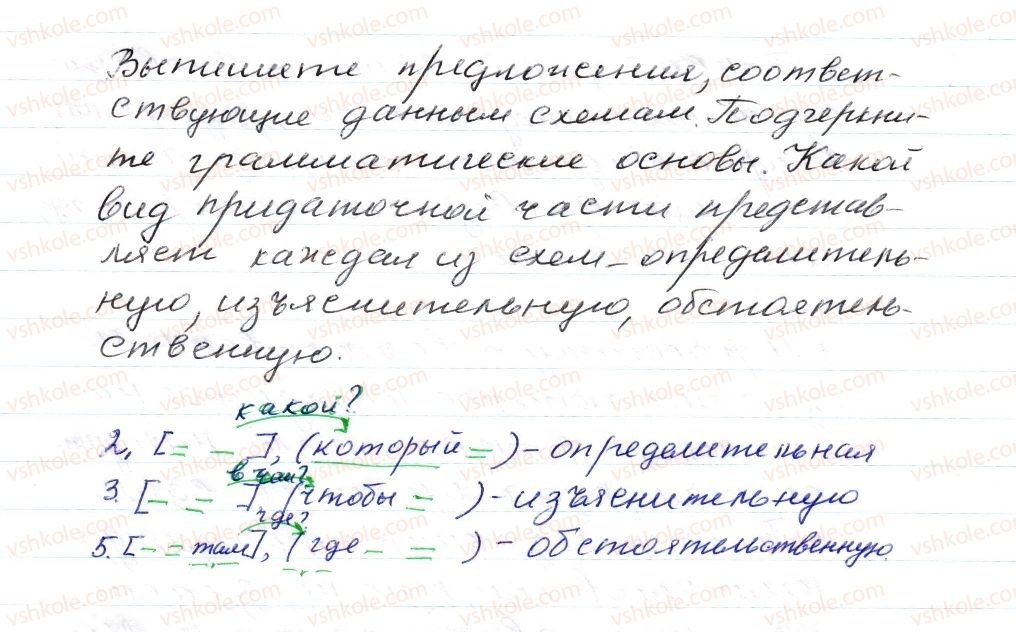 Выпишите предложения, соответ-
ствующие данным схемам. Подчеркни-
те грамматические основы. Какой
вид придаточной части представ-
ляет каждая из схем – определитель-
ную, изъяснительную, обстоятель-
ственную.
какой?
2. [= – ], (который = ) – определительная
в чём?
3. [– = ], (чтобы = ) – изъяснительную
где?
5. [– – там], (где – = ) – обстоятельственную.
vshkole.com